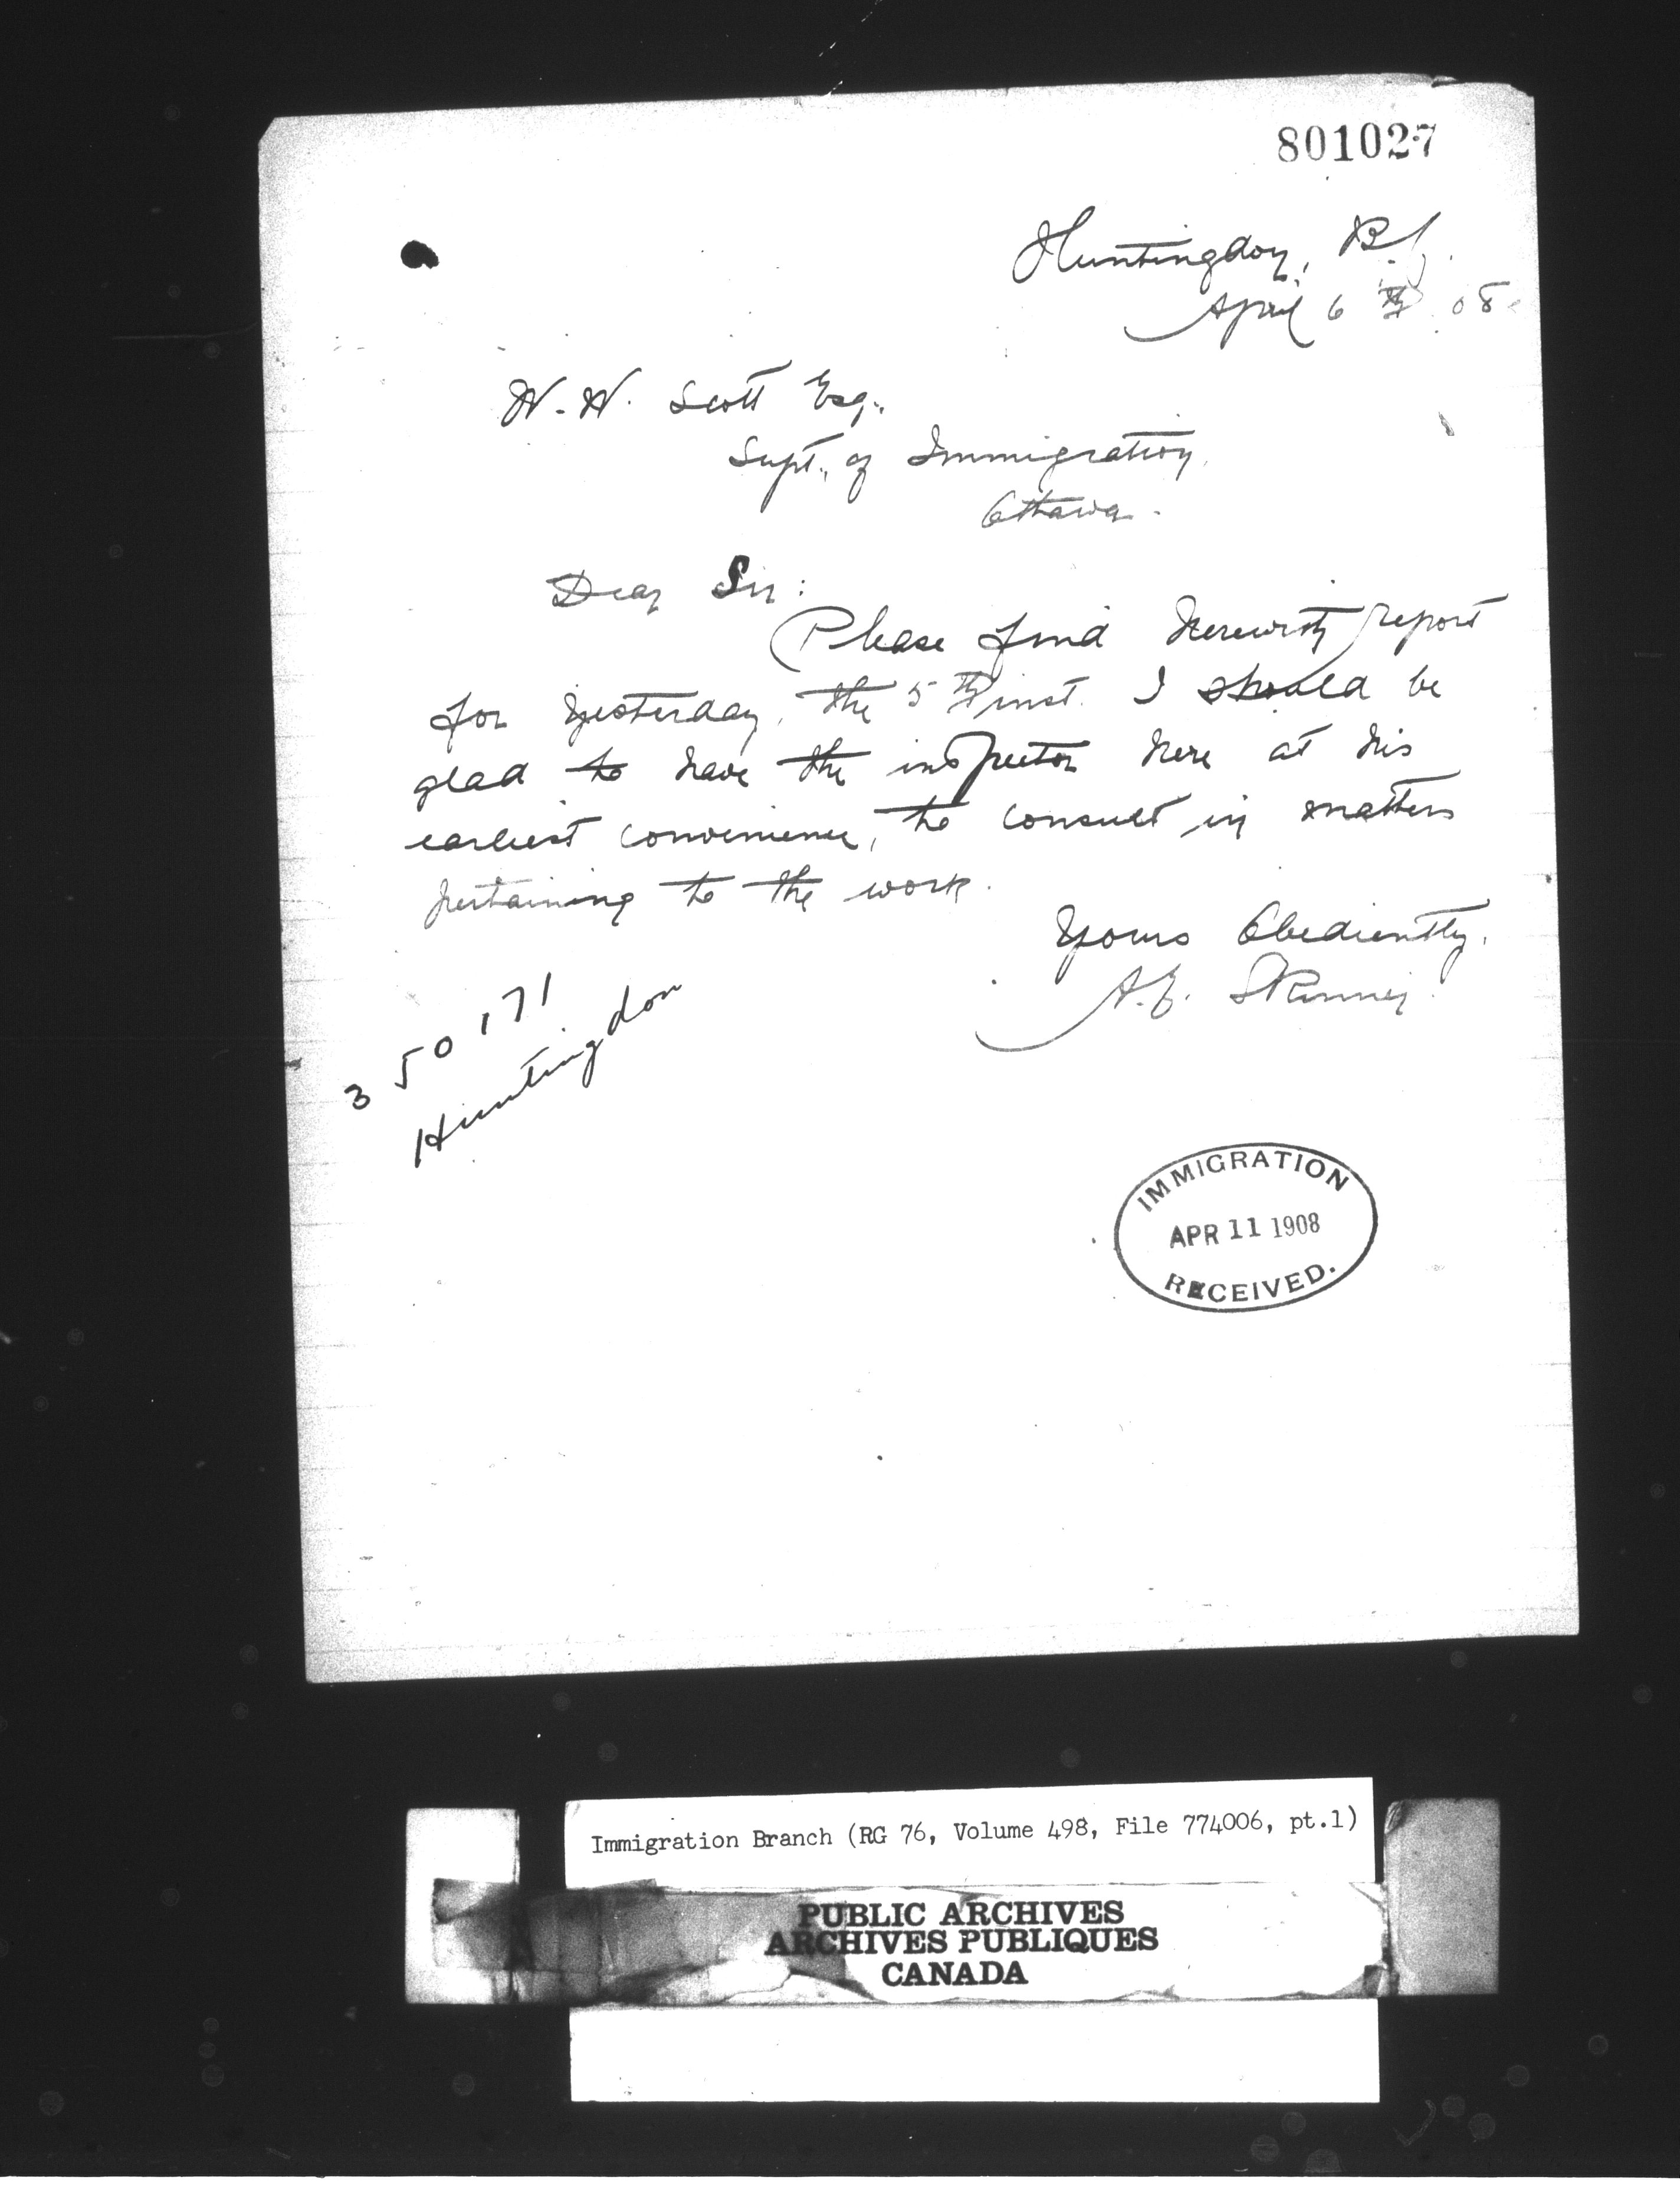 801027
Huntingdon, B.C.
April 6th 08
W. W. Scott Esq.,
Supt., of Immigration,
Ottawa.
Dear Sir:
Please find herewith report
for yesterday, the 5th inst. I should be
glad to have the inspector here at his
earliest convenience, to consult in matters
pertaining to the work.
Yours Obediently,
A. E. Skinner.
350171
Huntingdon
IMMIGRATION
APR 11 1908
RECEIVED.
Immigration Branch (RG 76, Volume 498, File 774006, pt.1)
PUBLIC ARCHIVES
ARCHIVES PUBLIQUES
CANADA